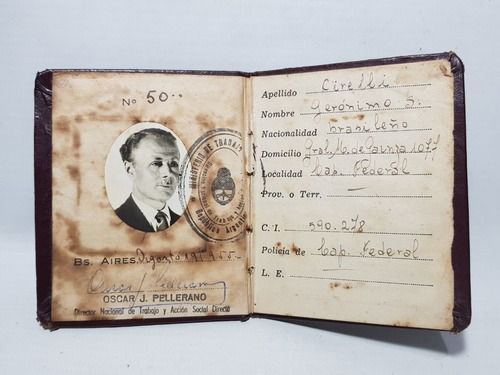 Nº 50..
MINISTERIO DE TRABAJO
República Argentina
Bs. AIRES, Agosto 19 1955.-
OSCAR J. PELLERANO
Director Nacional de Trabajo y Acción Social Directa
Apellido Cirelli
Nombre Gerónimo S.
Nacionalidad brasileño
Domicilio Gral. M. de 1077
Localidad Cap. Federal
Prov. o Terr.
C. I. 590.278
Policía de Cap. Federal
L. E.